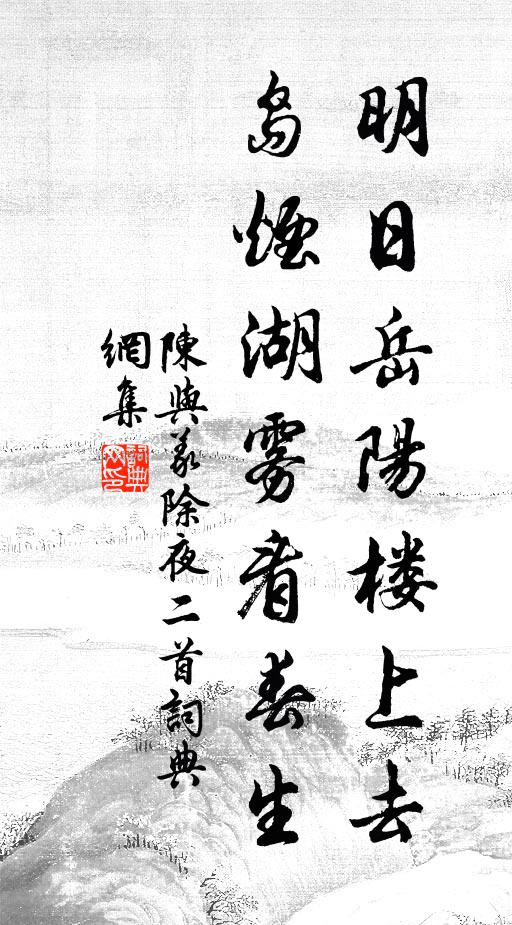 明日岳陽楼上去
島煙湖雾看春生
陳與義除夜二首詞典
網集
詞典網印